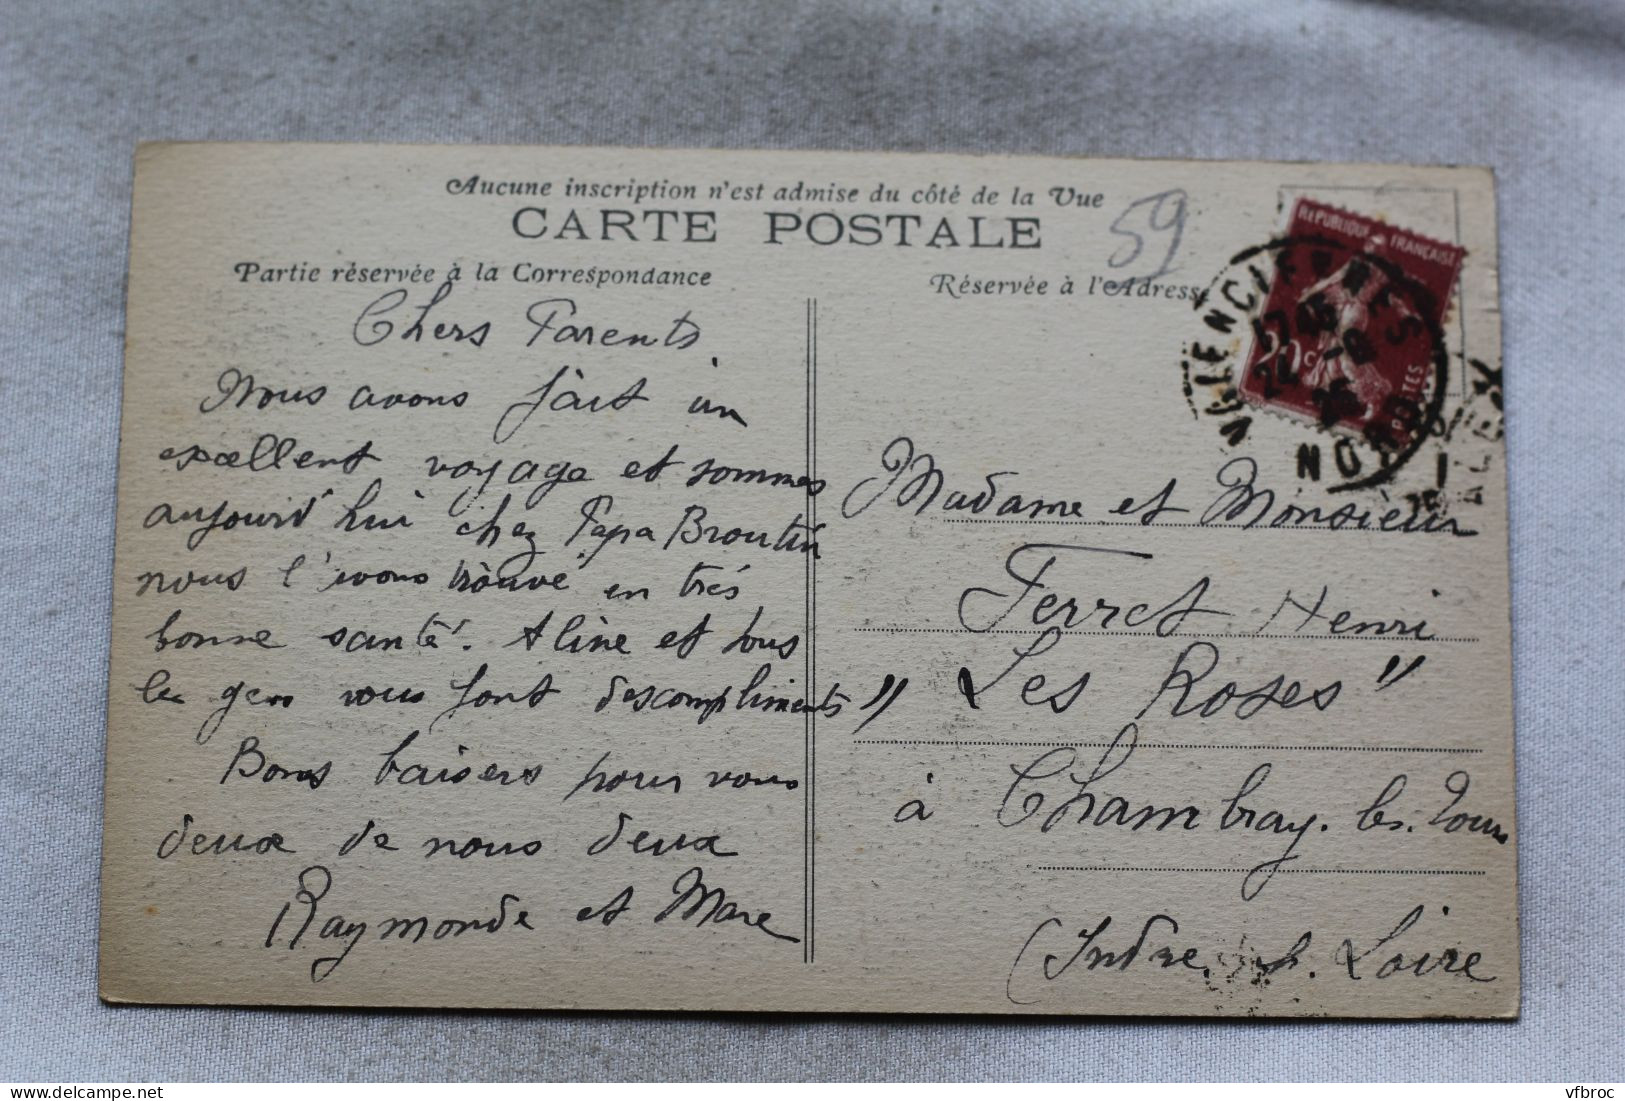 Aucune inscription n'est admise du côté de la Vue
CARTE POSTALE
59
Partie réservée à la Correspondance
Réservée à l'Adresse
Chers Parents
Nous avons fait un
excellent voyage et sommes
aujourd'hui chez Papa Broutin
nous l'avons trouvé en très
bonne santé. Aline et tous
les gens vous font des compliments
Bons baisers pour vous
deux de nous deux
Raymonde et Marc
REPUBLIQUE FRANÇAISE
20c
POSTES
VALENCIENNES
NORD
Madame et Monsieur
Ferret Henri
"Les Roses"
à Chambray-les-Tours
(Indre-et-Loire
vfbroc
www.delcampe.net